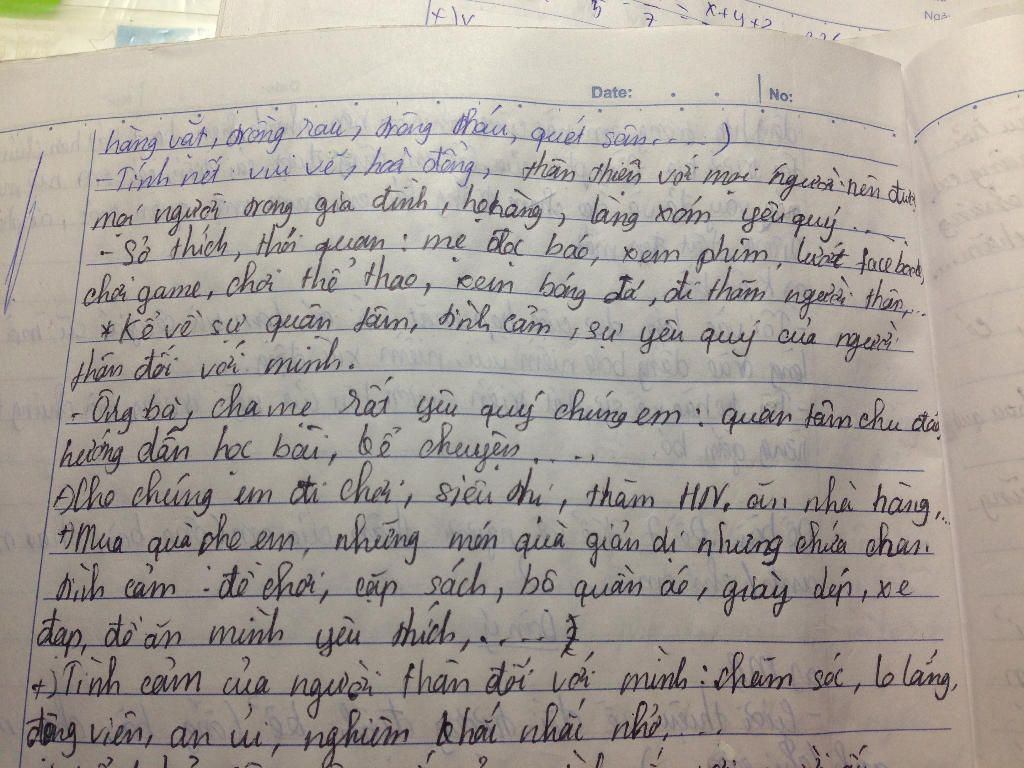 x+y+z
No:
Date: No:
hàng vắt, trồng rau, trồng thấu, quét sân....)
- Tính nết: vui vẻ, hoà đồng, thân thiện với mọi người nên được
mọi người trong gia đình, họ hàng, làng xóm yêu quý...
- Sở thích, thói quan: mẹ đọc báo, xem phim, lướt facebook,
chơi game, chơi thể thao, xem bóng đá, đi thăm người thân,...
* Kể về sự quân tâm, tình cảm, sự yêu quý của người
thân đối với mình.
- Ông bà, cha mẹ rất yêu quý chúng em: quan tâm chu đáo,
hướng dẫn học bài, kể chuyện....
+) Cho chúng em đi chơi, siêu thị, thăm HN, ăn nhà hàng,...
+) Mua quà cho em, những món quà giản dị nhưng chứa chan
tình cảm: đồ chơi, cặp sách, bộ quần áo, giày dép, xe
đạp, đồ ăn mình yêu thích,....
+) Tình cảm của người thân đối với mình: chăm sóc, lo lắng,
động viên, an ủi, nghiêm khắc nhắc nhở,...